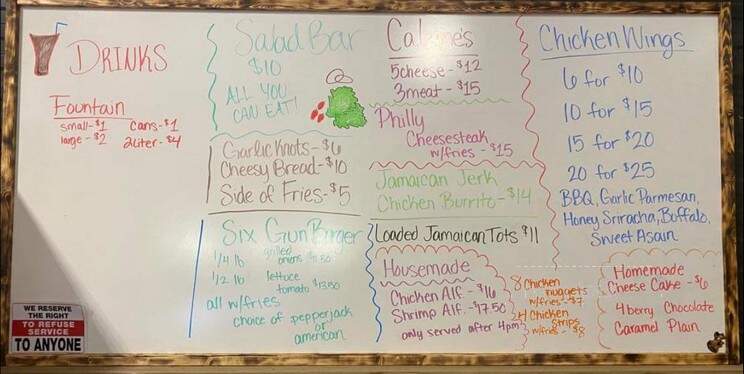 DRINKS
Fountain
small-$1 cans-$1
large-$2 2liter-$4
WE RESERVE
THE RIGHT
TO REFUSE
SERVICE
TO ANYONE
Salad Bar
$10
ALL YOU
CAN EAT!
Garlic Knots-$6
Cheesy Bread-$10
Side of Fries-$5
Six Gun Burger
1/4 lb grilled
onions
1/2 lb lettuce
tomato $13.50
all w/fries
choice of pepperjack
or
american
Calzone's
5cheese-$12
3meat-$15
Philly
Cheesesteak
w/fries-$15
Jamaican Jerk
Chicken Burrito-$14
Loaded Jamaican Tots $11
Housemade
Chicken Alf.-$16
Shrimp Alf.-$17.50
only served after 4pm
8 Chicken
nuggets
w/fries-$7
4 Chicken
strips
w/fries-$8
Chicken Wings
6 for $10
10 for $15
15 for $20
20 for $25
BBQ, Garlic Parmesan,
Honey Sriracha, Buffalo,
Sweet Asain
Homemade
Cheese Cake-$6
4berry Chocolate
Caramel Plain